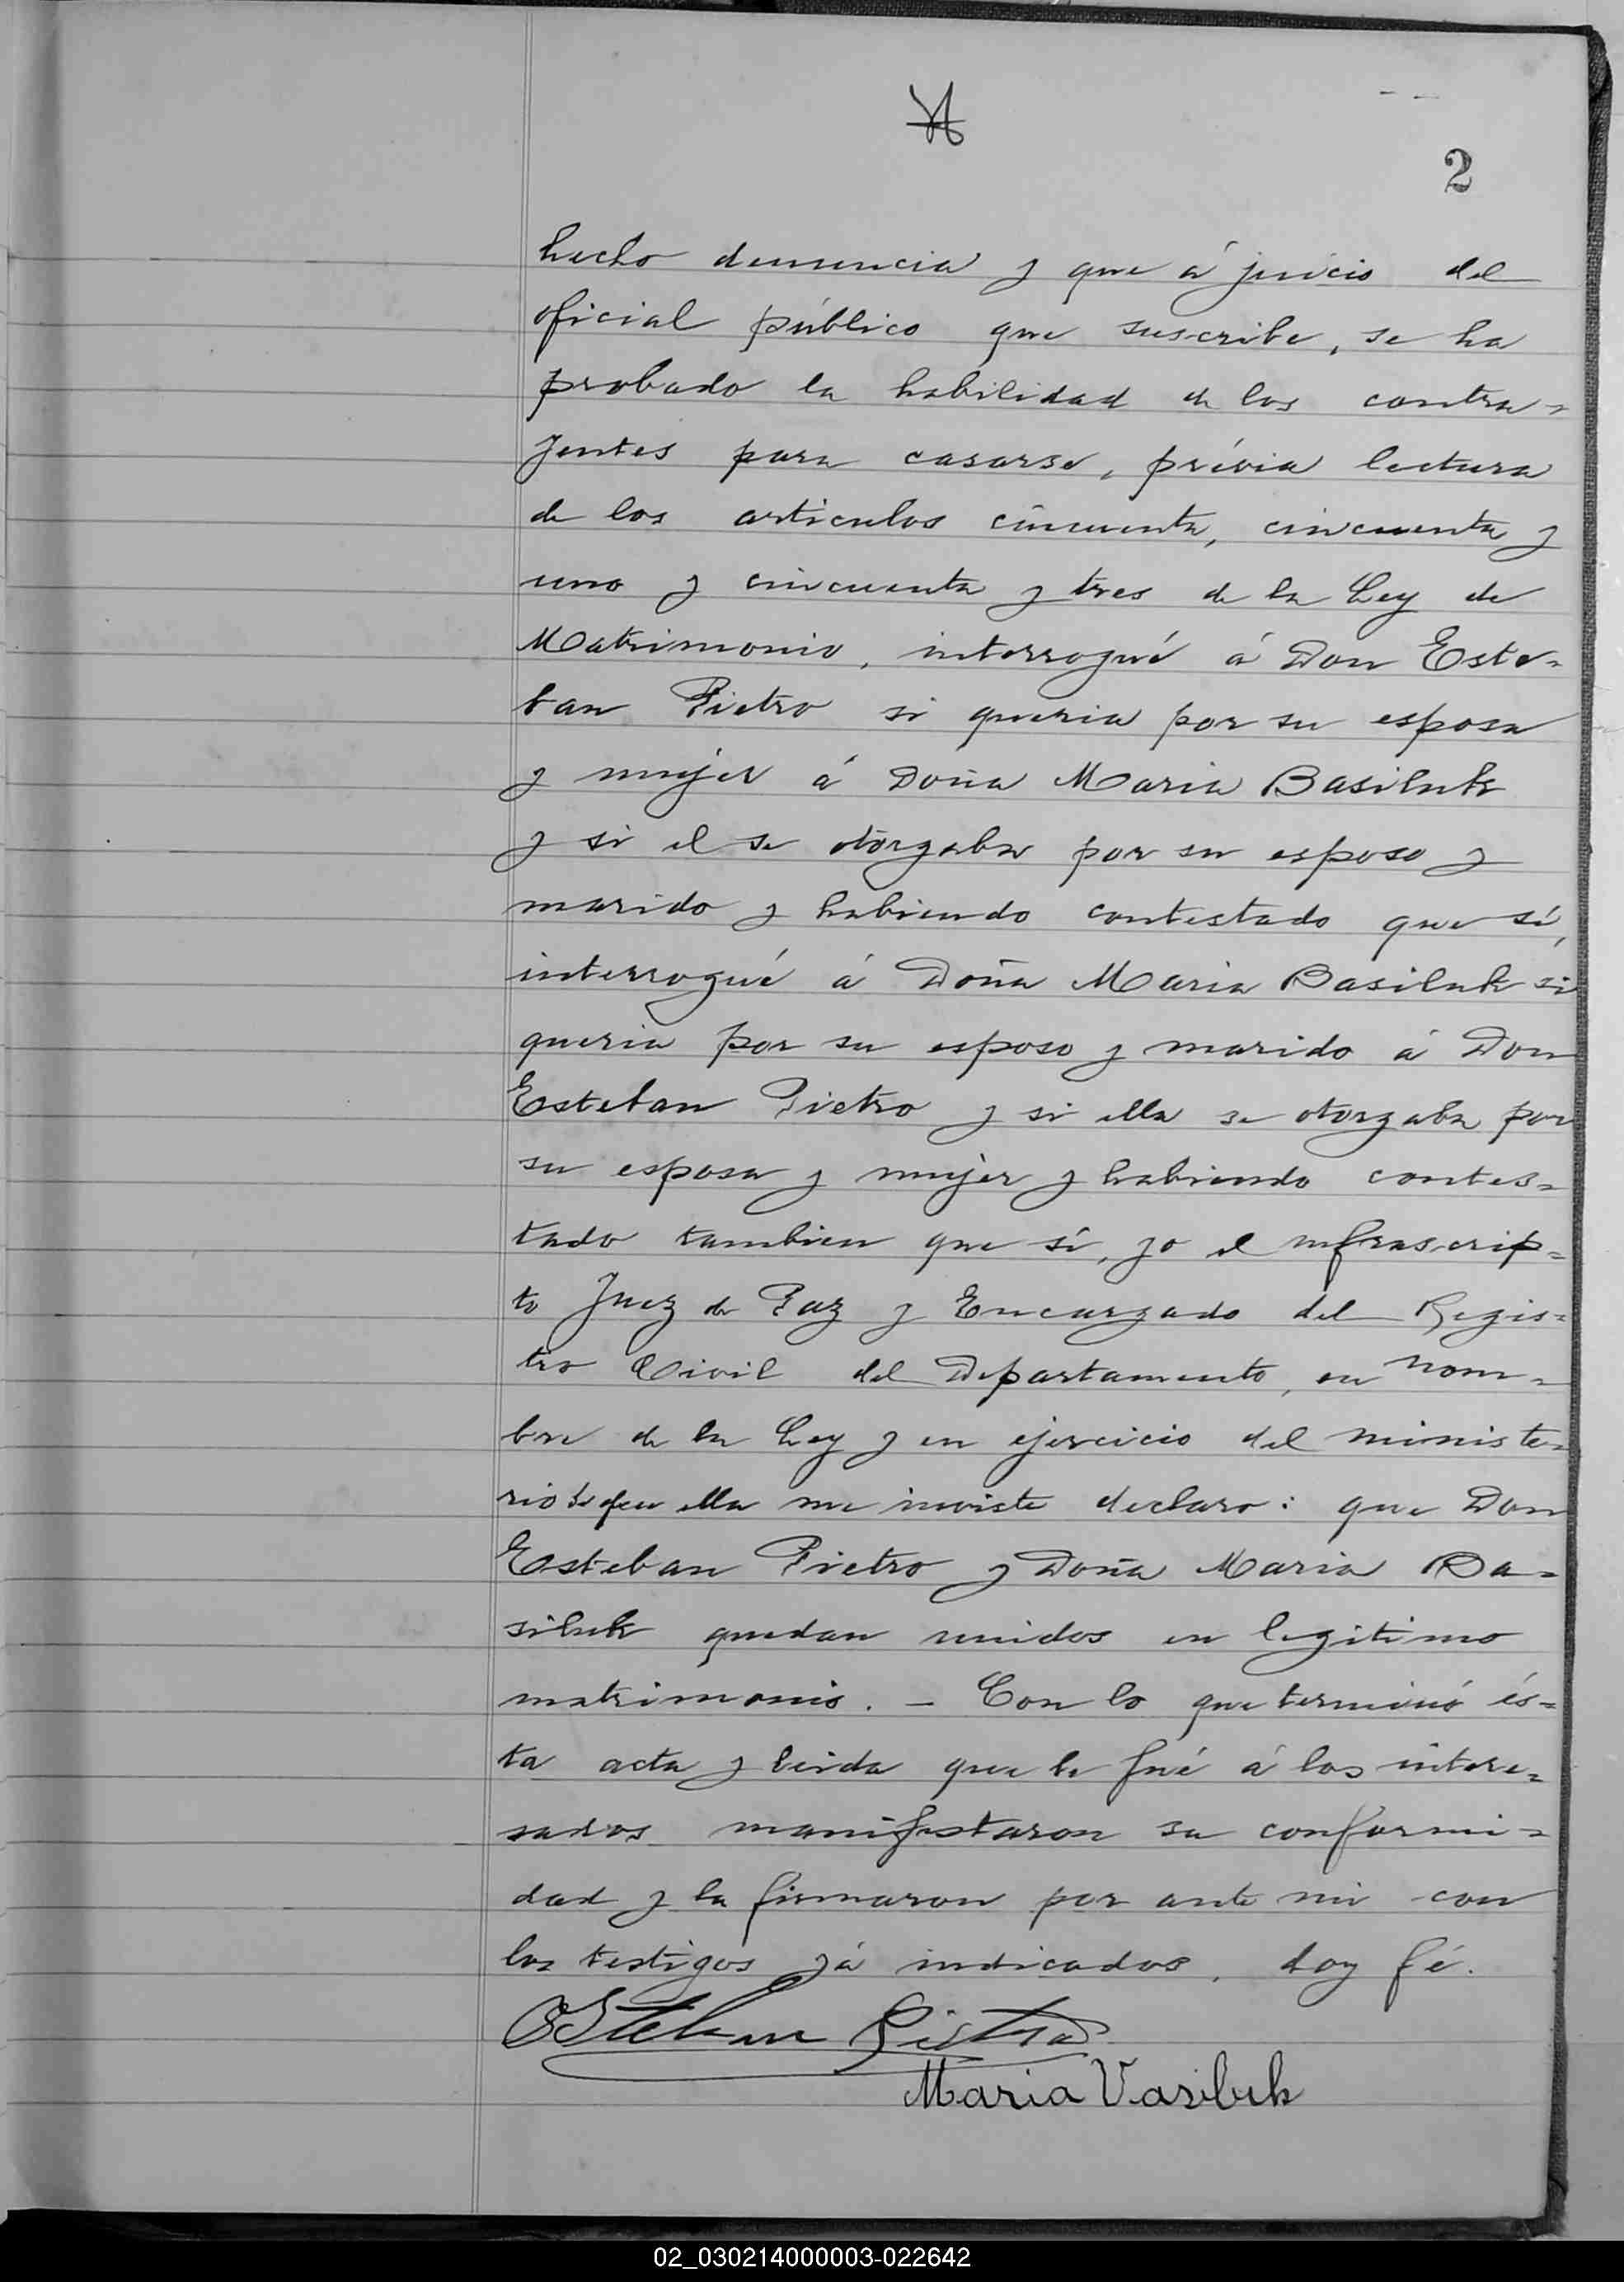 2
hecho denuncia y que á juicio del
oficial público que suscribe, se ha
probado la habilidad de los contra=
yentes para casarse, prévia lectura
de los articulos cincuenta, cincuenta y
uno y cincuenta y tres de la Ley de
Matrimonio, interrogué á Don Este=
ban Pietro si queria por su esposa
y mujer á Doña Maria Basiluk
y si el se otorgaba por su esposo y
marido y habiendo contestado que sí,
interrogué á Doña Maria Basiluk si
queria por su esposo y marido á Don
Esteban Pietro y si ella se otorgaba por
su esposa y mujer y habiendo contes=
tado tambien que sí, yo el infrascrip=
to Juez de Paz y Encargado del Regis=
tro Civil del Departamento, en nom=
bre de la Ley y en ejercicio del ministe=
rio de que ella me inviste declaro: que Don
Esteban Pietro y Doña Maria Ba=
siluk quedan unidos en legitimo
matrimonio. – Con lo que terminó és=
ta acta y leida que le fué á los intere=
sados manifestaron su conformi=
dad y la firmaron por ante mi con
los testigos yá indicados, doy fé.
Esteban Pietro
Maria Vasiluk
02_030214000003-022642